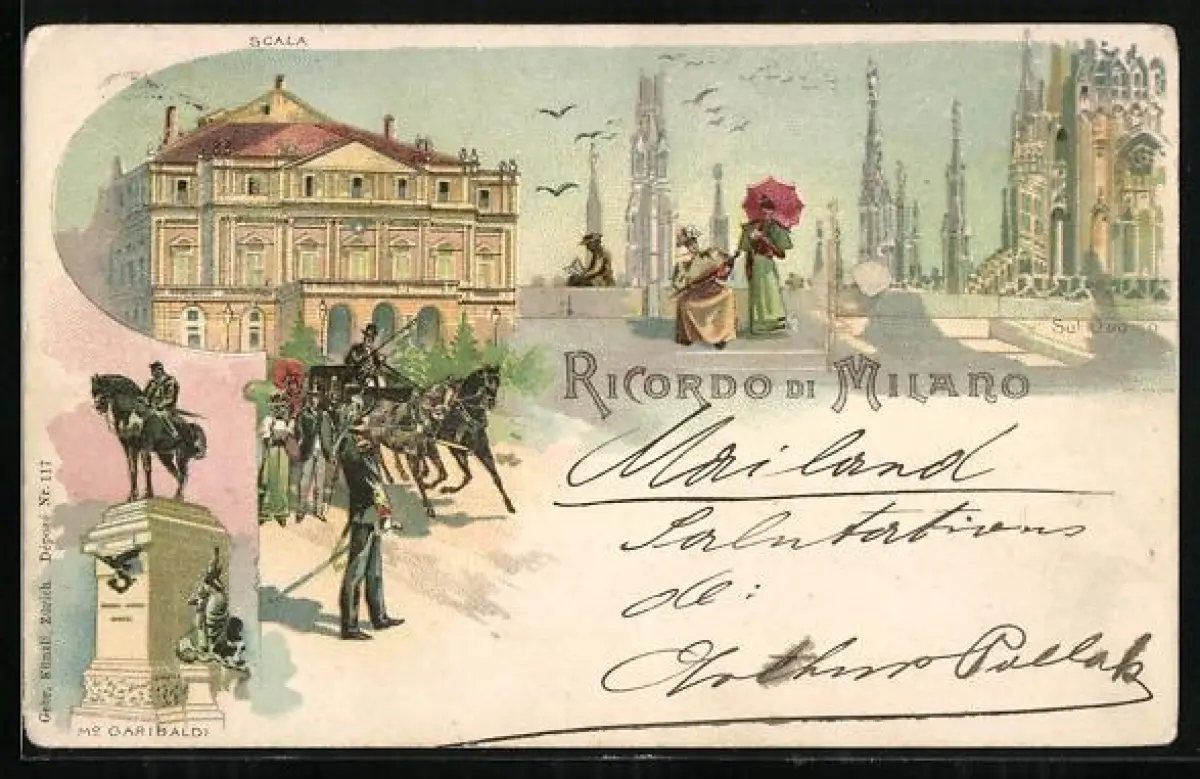 SCALA
Sul Duomo
RICORDO DI MILANO
Mailand
Salutations
de:
Arthur Pollak
Gebr. Künzli, Zürich. Déposé. Nr. 117
Mo GARIBALDI